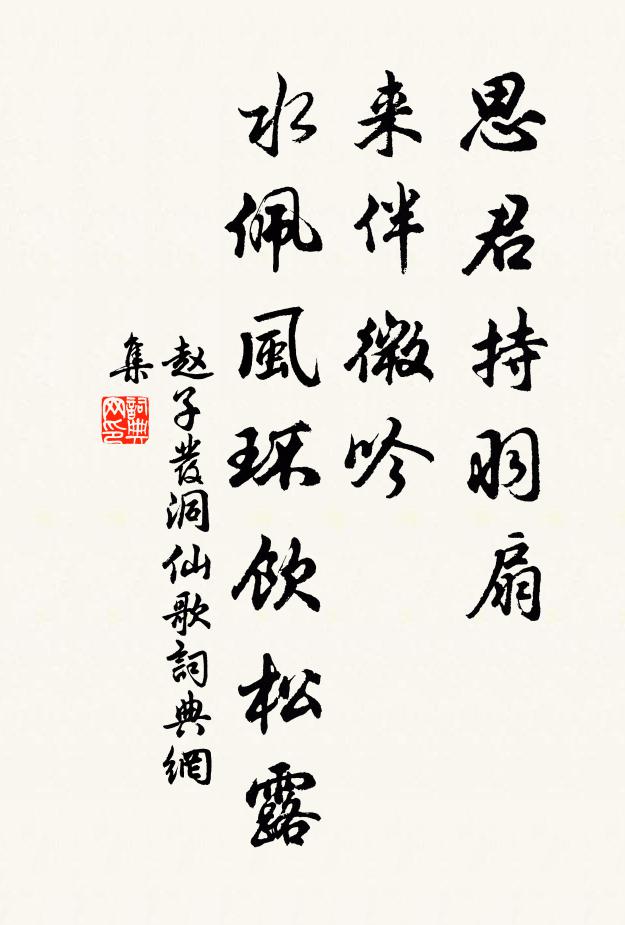 思君持羽扇
来伴微吟
水佩風环飲松露
赵子發洞仙歌詞典網
集
詞典网印